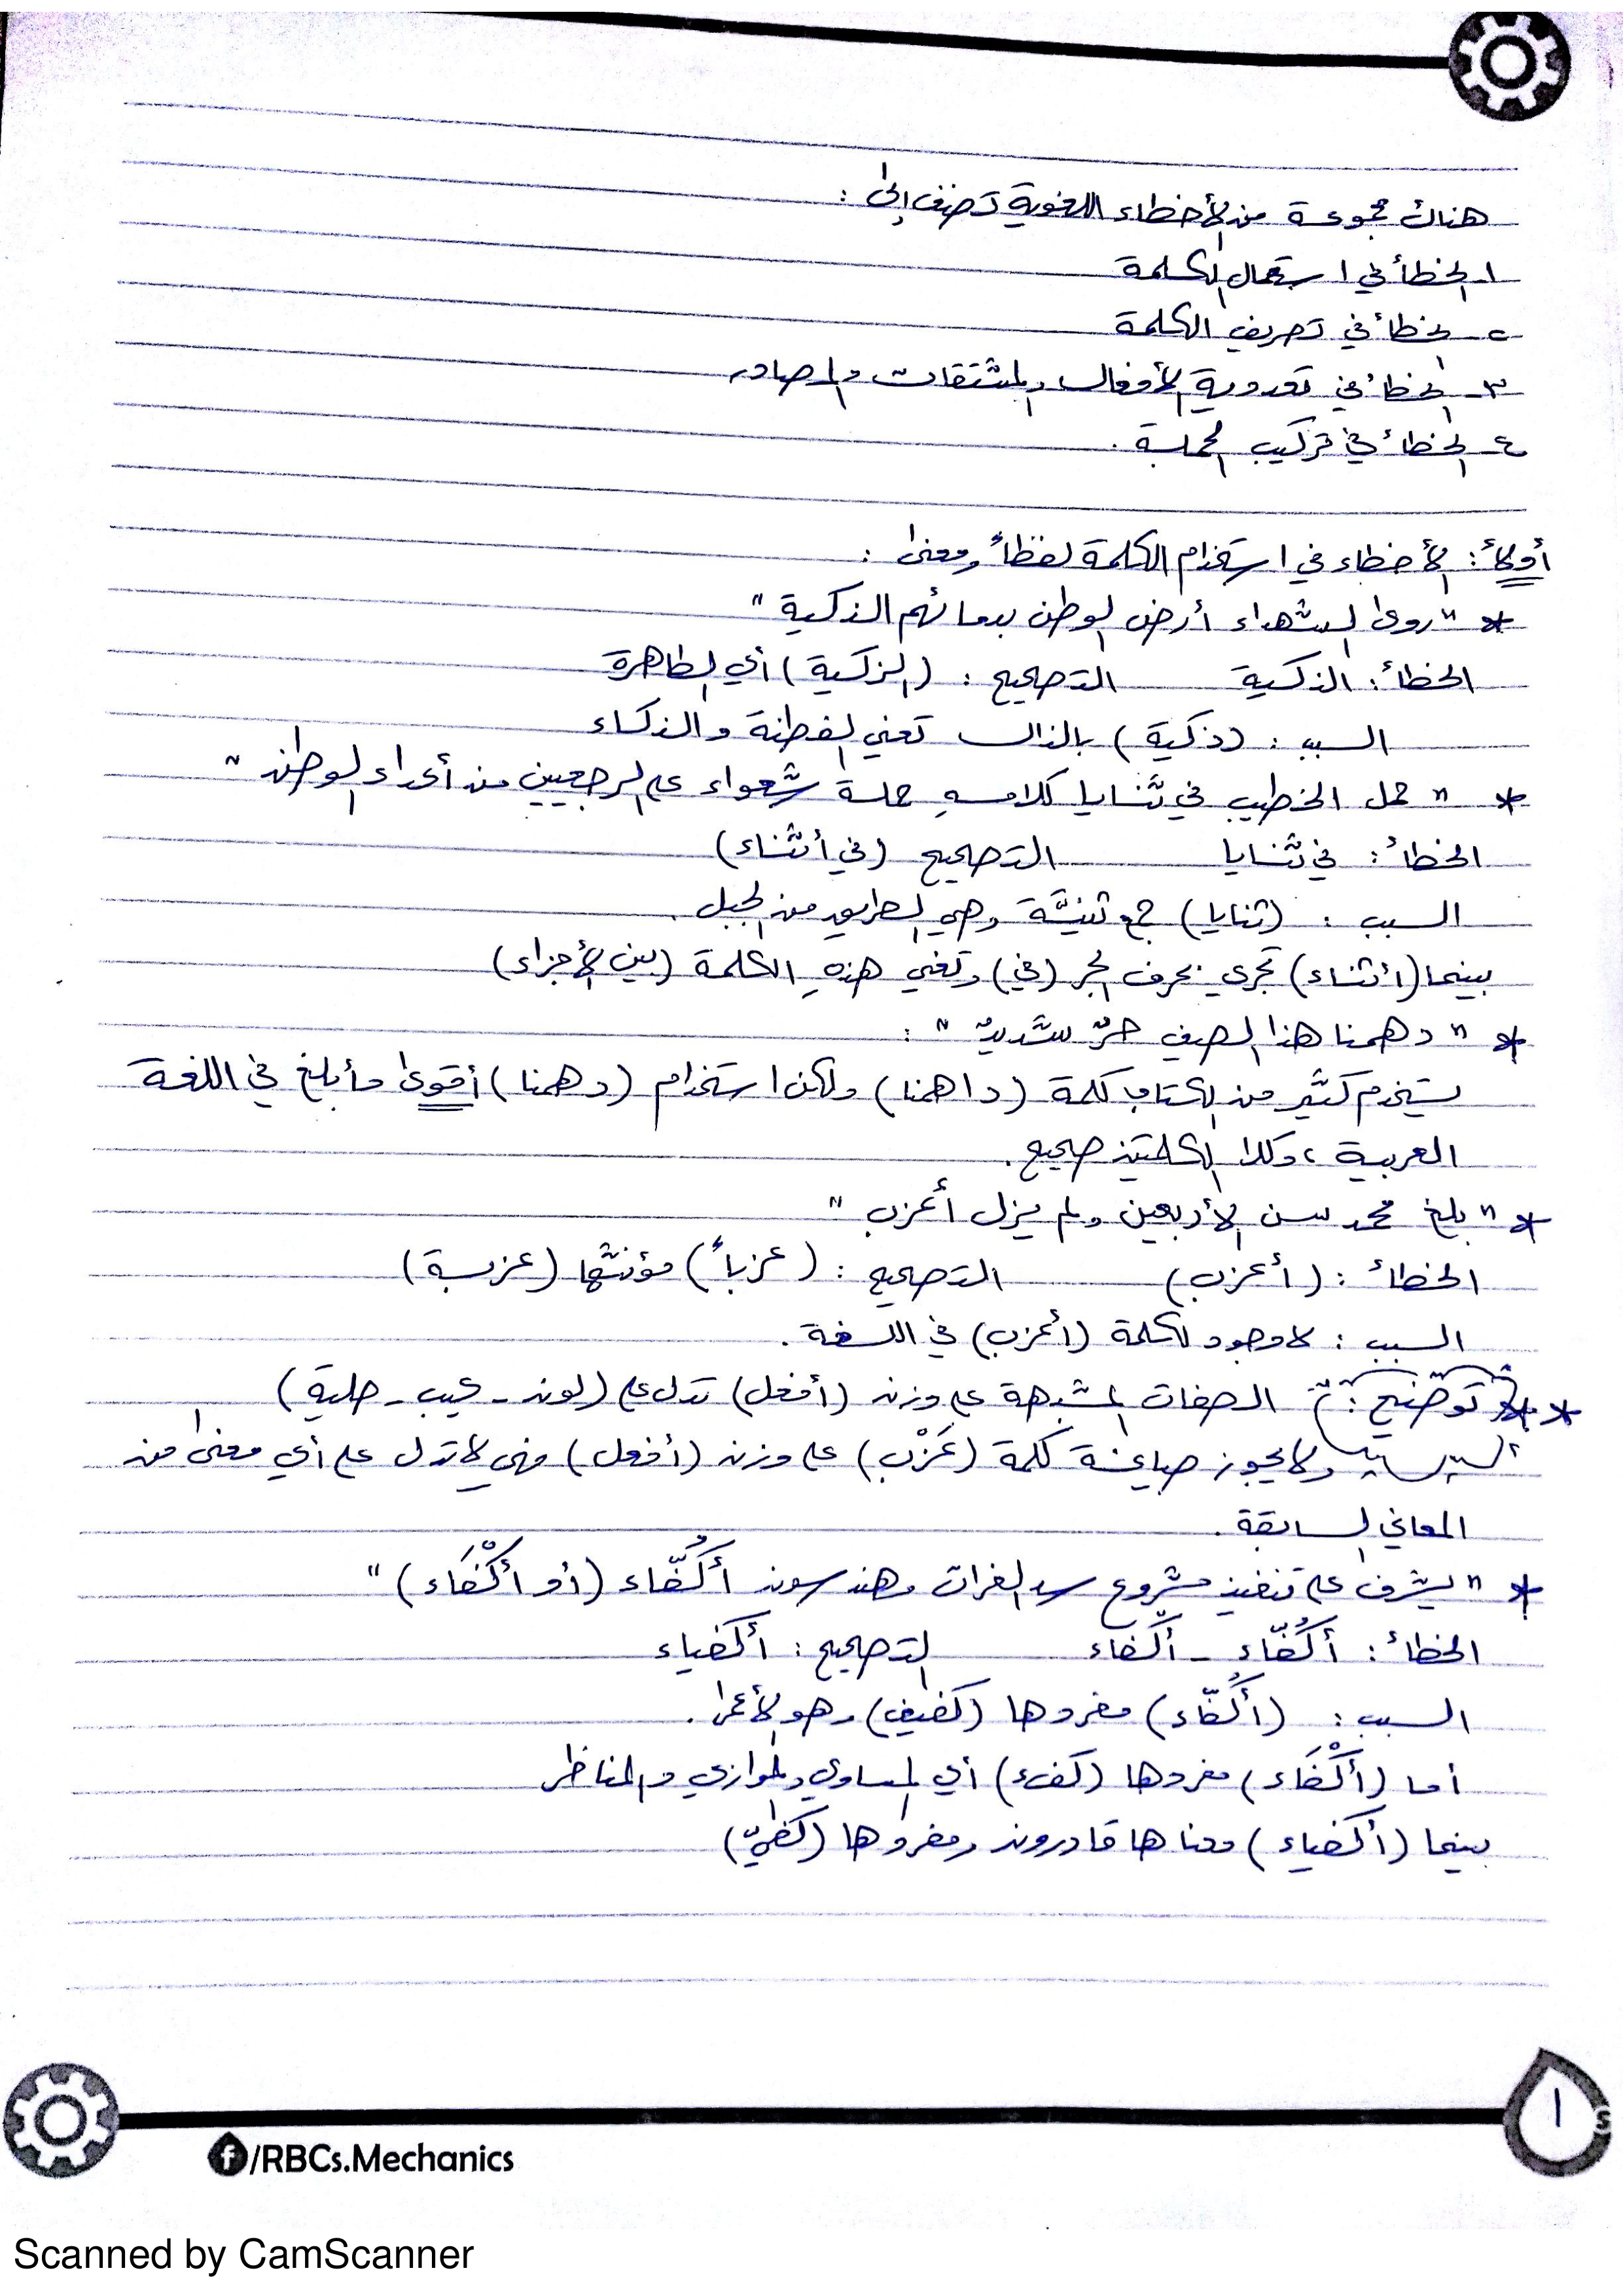 هناك مجموعة من الأخطاء اللغوية تصنف إلى :
١- الخطأ في استعمال الكلمة
٢- الخطأ في تصريف الكلمة
٣- الخطأ في تعدوية الأفعال والمشتقات والمصادر
٤- الخطأ في تركيب الجملة .
أولاً : الأخطاء في استخدام الكلمة لفظاً ومعنى :
* " روى الشهداء أرض الوطن بدمائهم الذكية "
الخطأ : الذكية التصحيح : (الزكية) أي الطاهرة
السبب : (ذكية) بالذال تعني الفطنة والذكاء
* " حمل الخطيب في ثنايا كلامهِ حملة شعواء على الرجعيين من أعداء الوطن "
الخطأ : في ثنايا التصحيح (في أثناء)
السبب : (ثنايا) جمع ثنيَّة وهي الطريق من الجبل .
بينما (أثناء) تجري بحرف الجر (في) وتعني هذهِ الكلمة (بين الأجزاء)
* " دهمنا هذا الصيف حرٌّ شديدٌ " :
يستخدم كثير من الكتاب كلمة (داهمنا) ولكن استخدام (دهمنا) أقوى وأبلغ في اللغة
العربية ، وكلا الكلمتين صحيح .
* " بلغ محمد سن الأربعين ولم يزل أعزب "
الخطأ : (أعزب) التصحيح : (عزباً) مؤنثها (عزبة)
السبب : لا وجود لكلمة (أعزب) في اللغة .
** توضيح : الصفات المشبهة على وزن (أفعل) تدل على (لون - عيب - حلية)
ولا يجوز صياغة كلمة (عَزْب) على وزن (أفعل) فهي لا تدل على أي معنى من
المعاني السابقة .
* " يشرف على تنفيذ مشروع سد الفرات مهندسون أَكُفّاء (أو أَكْفَاء) "
الخطأ : أَكُفّاء - أكْفاء التصحيح : أكفياء
السبب : (أَكُفّاء) مفردها (كفيف) وهو الأعمى .
أما (أَكْفَاء) مفردها (كفء) أي المساوي والموازي والمناظر
بينما (أكفياء) معناها قادرون ومفردها (كفيّ)
١
/RBCs.Mechanics
Scanned by CamScanner